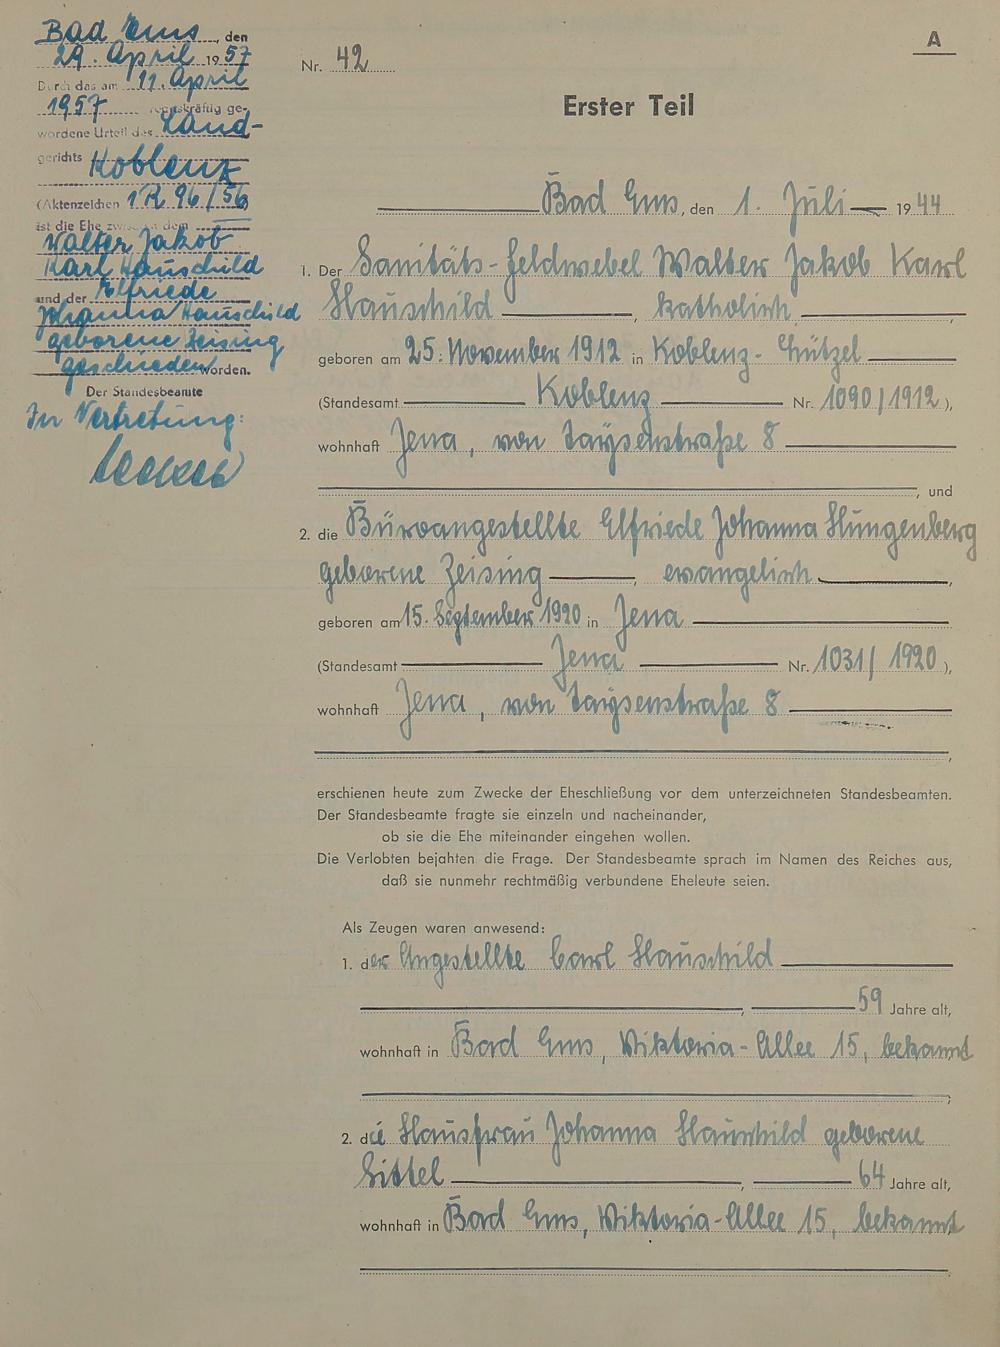 Bad Ems, den
29. April 1957
Durch das am 11. April
1957 rechtskräftig ge-
wordene Urteil des Land-
gerichts Koblenz
(Aktenzeichen 1 R 96/56)
ist die Ehe zwischen dem
Walter Jakob
Karl Hauschild
und der Elfriede
Johanna Hauschild
geborene Zeising
geschieden worden.
Der Standesbeamte
In Vertretung:
A
Nr. 42
Erster Teil
Bad Ems, den 1. Juli 1944
1. Der Sanitäts-Feldwebel Walter Jakob Karl
Hauschild, katholisch,
geboren am 25. November 1912 in Koblenz-Lützel
(Standesamt Koblenz Nr. 1090/1912),
wohnhaft Jena, von Taysenstraße 8
, und
2. die Büroangestellte Elfriede Johanna Klungenberg
geborene Zeising, evangelisch,
geboren am 15. September 1920 in Jena
(Standesamt Jena Nr. 1031/1920),
wohnhaft Jena, von Taysenstraße 8
,
erschienen heute zum Zwecke der Eheschließung vor dem unterzeichneten Standesbeamten.
Der Standesbeamte fragte sie einzeln und nacheinander,
ob sie die Ehe miteinander eingehen wollen.
Die Verlobten bejahten die Frage. Der Standesbeamte sprach im Namen des Reiches aus,
daß sie nunmehr rechtmäßig verbundene Eheleute seien.
Als Zeugen waren anwesend:
1. der Angestellte Carl Hauschild
, 59 Jahre alt,
wohnhaft in Bad Ems, Viktoria-Allee 15, bekannt
;
2. die Hausfrau Johanna Hauschild geborene
Sittel, 64 Jahre alt,
wohnhaft in Bad Ems, Viktoria-Allee 15, bekannt